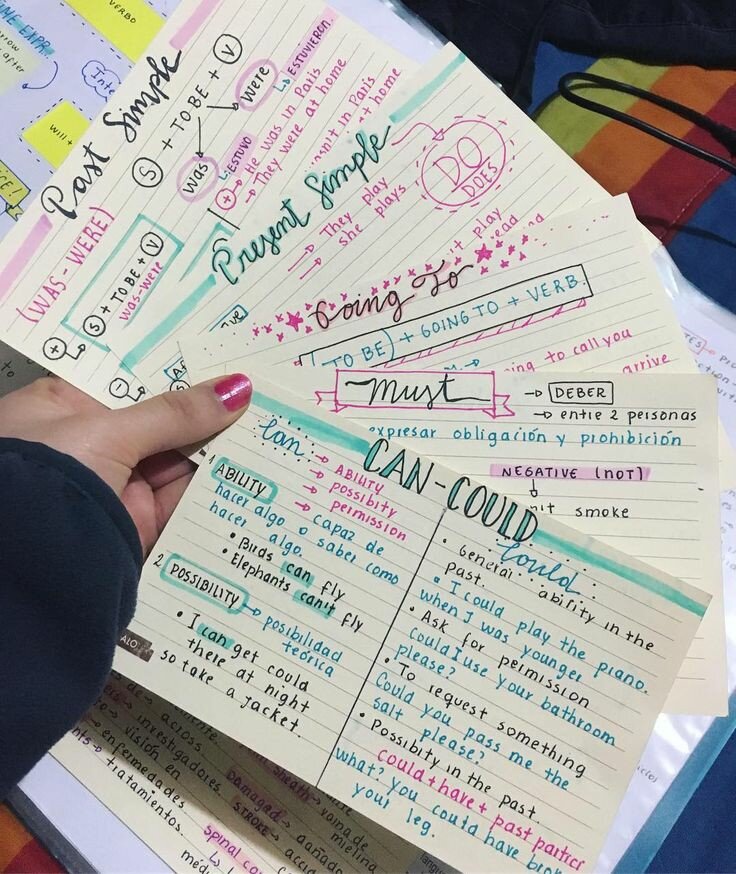 VERBO
TIME EXPR
after
Inte
Will +
Past Simple
(WAS-WERE)
S + TO BE + V
was
were
↳ ESTUVO
↳ ESTUVIERON.
+ → He was in Paris
→ They were at home
in Paris
t home
+ S + TO BE + V
was-were
-
Present Simple
DO
DOES
→ They play
→ she plays
play
read
Going To
(TO BE) + GOING TO + VERB.
ing to call you
arrive
Must → DEBER
→ entre 2 personas
expresar obligación y prohibición
NEGATIVE (NOT)
smoke
CAN-COULD
Can: → ABILITY
→ possibity
→ permission
1 ABILITY → capaz de
hacer algo o saber como
hacer algo.
• Birds can fly
• Elephants can't fly
2 POSSIBILITY → posibilidad
teórica
• I can get could
there at night
so take a jacket.
Could:
• General ability in the
past.
• I could play the piano.
when I was younger
• Ask for permission
Could I use your bathroom
please?
• To request something
Could you pass me the
salt please?
• Possibity in the past.
could + have + past partici
what? you could have brok
your leg.
ALO:
de → across
investigadores.
visión en
enfermedades
tratamientos.
sheath → vaina de
mielina
Damaged → dañado
STROKE → acci
Spinal co